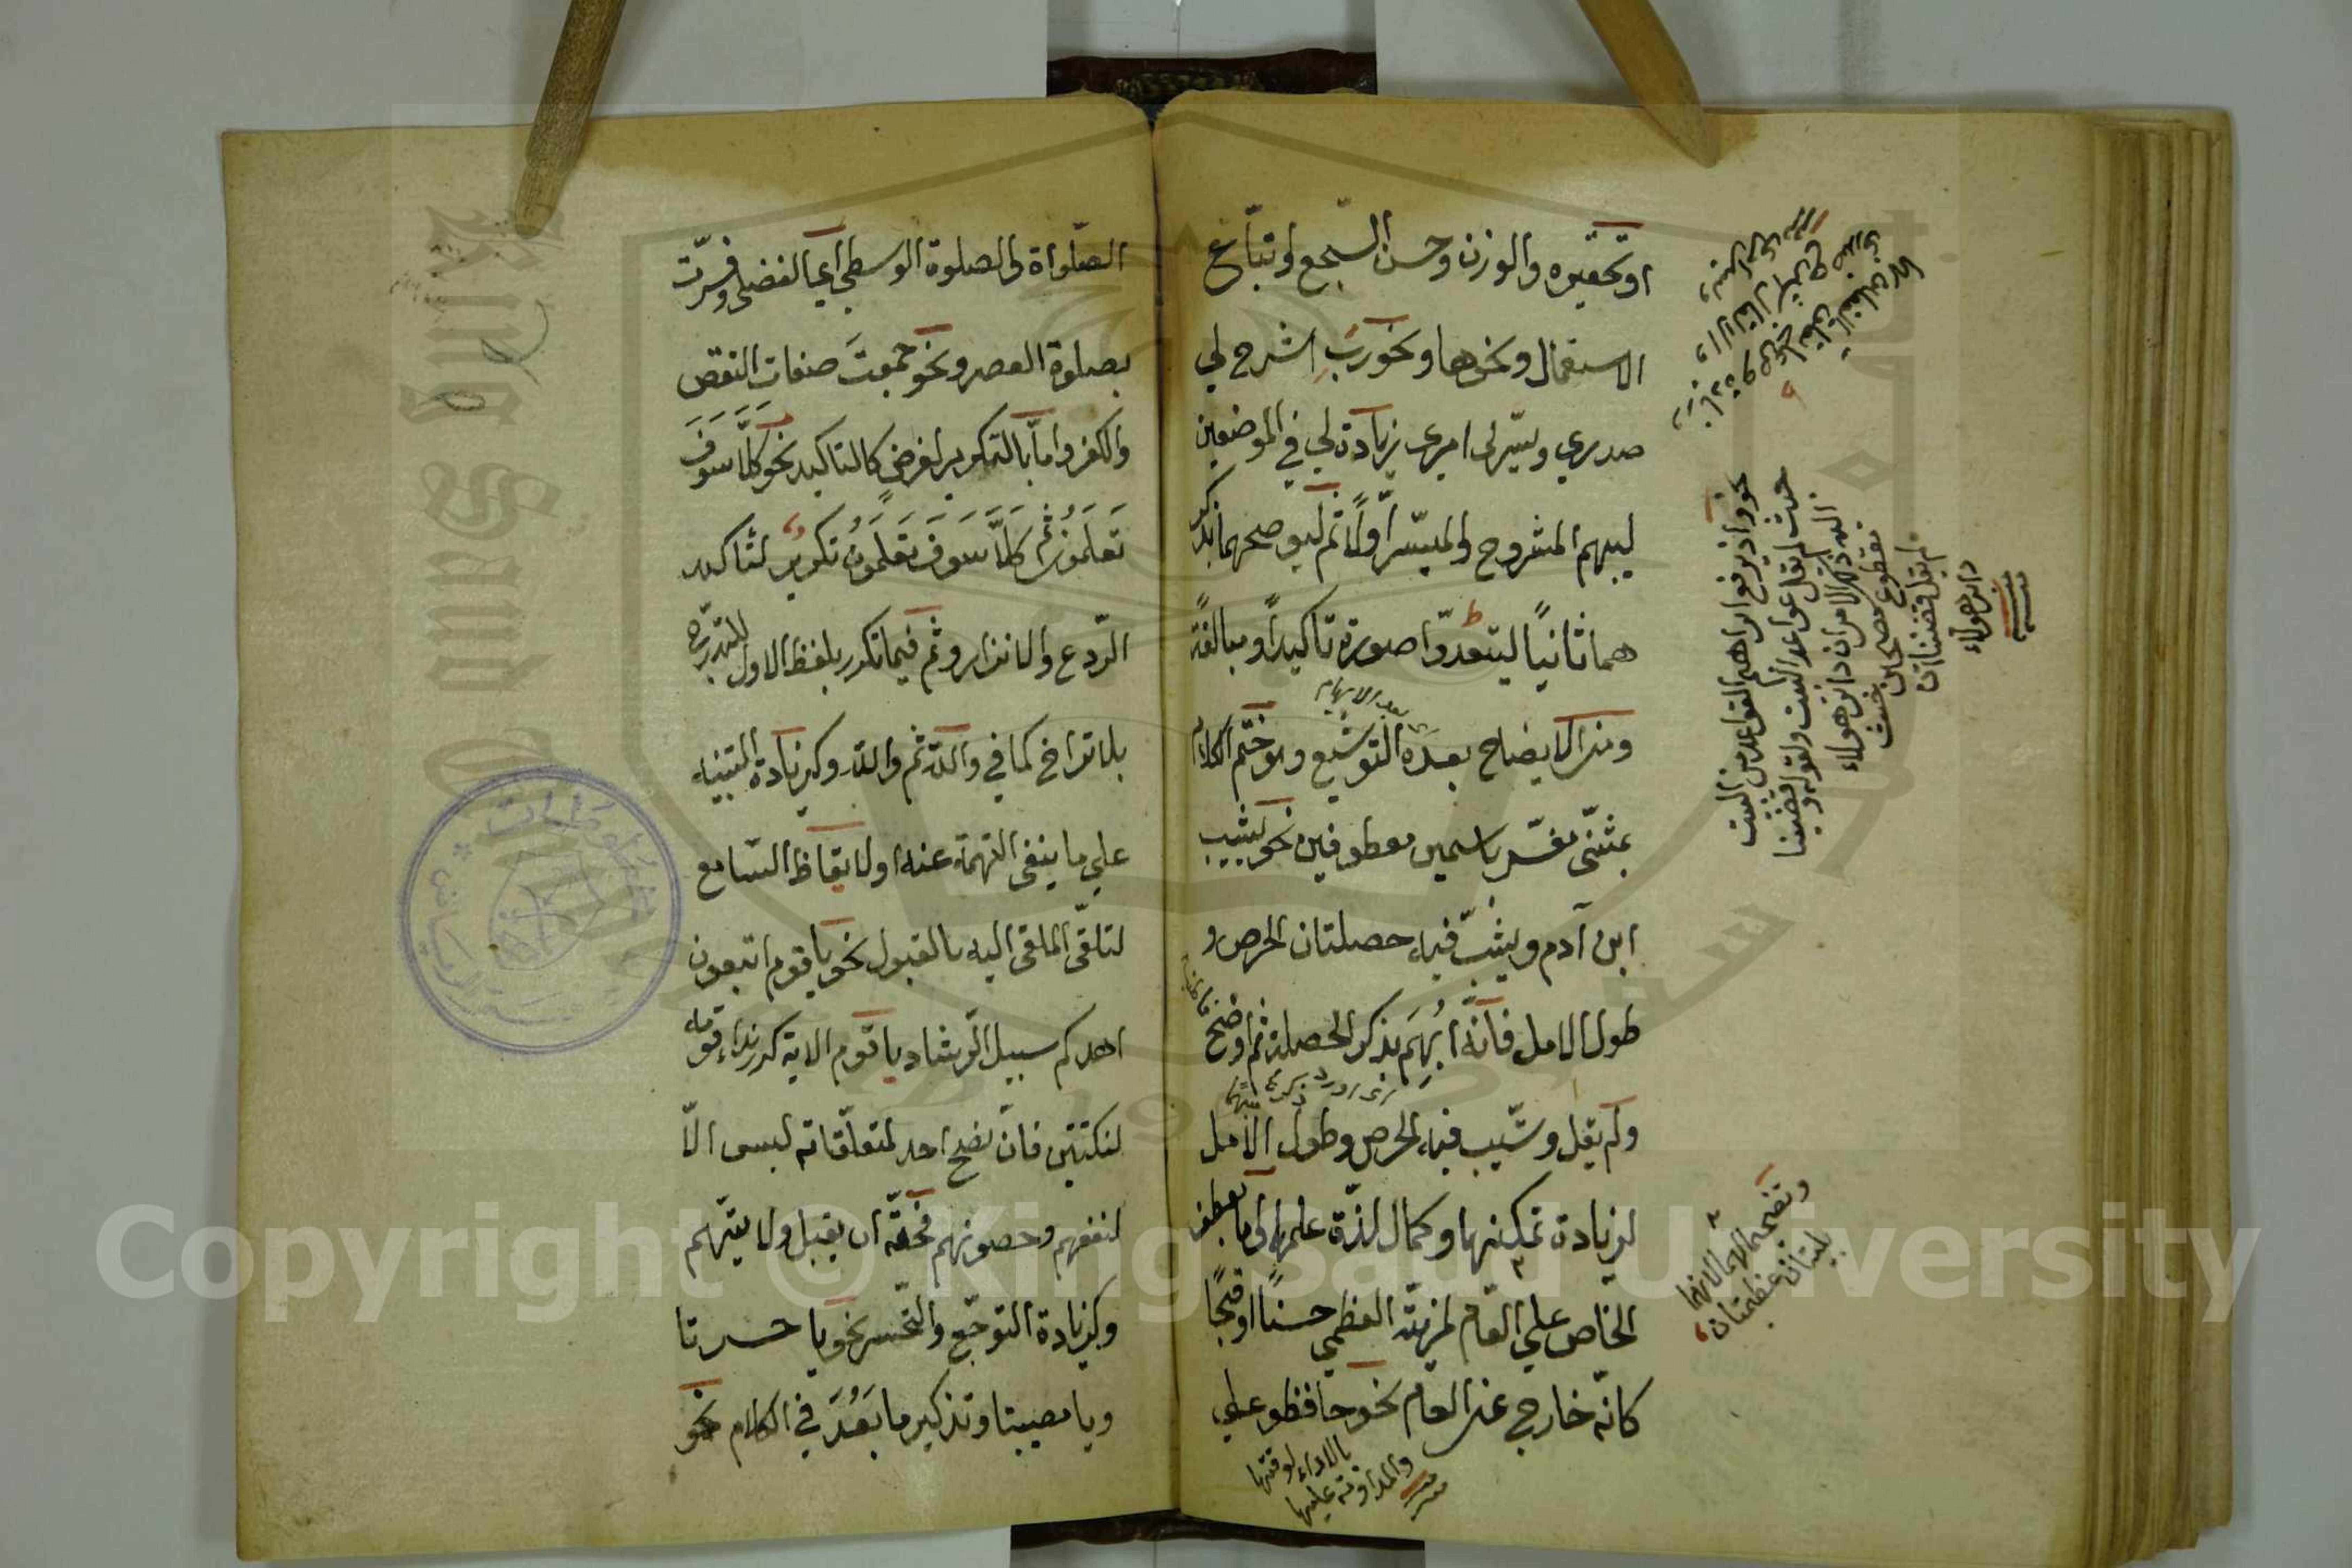 او تحقيره والوزن وحسن السّجع او تباع
الاستعمال ونحوها ونحو ربّ اشرح لي
صدري ويسّر لى امرى بزيادة لي في الموضعين
ليبهم المشروح والميسّر اوّلاً ثم ليوضحهما بذكر
هما ثانيًا ليتعدّوا صورة تاكيدًا ومبالغة
ومن الايضاح بعده التوشيع وهو ختم الكلام
بعد الابهام
بمثنّى مفسّر باسمين معطوفين نحو يشيب
ابن آدم ويشبّ فيه خصلتان الحرص و
طول الامل فانّه ابهم بذكر الخصلة ثم اوضح
ولم يقل وشيب فيه الحرص وطول الامل
لزيادة تمكنها وكمال لذّة علمها واما بعطف
الخاصّ علي العامّ لمزيّته العظمي حسنًا او قبحًا
كانّه خارج عن العام نحو حافظو علي
بالاداء لوقتها
والمداومة عليها
نحو واذ يرفع ابراهيم القواعد من البيت
حيث لم يقل قواعد البيت ولقوله وقضينا
اليه ذلك الامر ان دابر هولاء
مقطوع مصبحين حيث
لم يقل وقضينا ان
دابر هولاء
الصلواة والصلوة الوسطي اي الفضلى وفسّرت
بصلوة العصر ونحو جمعت صفات النقص
والكفر واما بالتكرير لغرض كالتاكيد نحو كلّا سوف
تعلمون ثم كلّا سوف تعلمون تكرير لتاكيد
الرّدع والانذار وثم فيما تكرر بلفظ الاول للتدرّج
بلا تراخ كما في والله ثم والله وكزيادة التنبيه
علي ما ينفى التهمة عنه او لايقاظ السّامع
لتلقّى الملقى اليه بالقبول نحو يا قوم اتبعون
اهدكم سبيل الرّشاد يا قوم الاية كرر نداء قومه
لنكتتين فانّ نصح احد لمتعلّقاته ليس الّا
لنفعهم وحصونهم فحقّه ان يقبل ولا يتّهم
وكزيادة التوجّع والتحّسر نحو يا حسرتا
ويا مصيبتا وتذكير ما بَعُدَ في الكلام نحو
Copyright © King Saud University